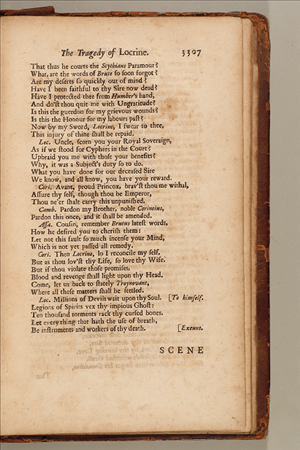 The Tragedy of Locrine. 3307
That thus he courts the Scythians Paramour?
What, are the words of Brute so soon forgot?
Are my deserts so quickly out of mind?
Have I been faithful to thy Sire now dead?
Have I protected thee from Humber's hand,
And do'st thou quit me with Ungratitude?
Is this the guerdon for my grievous wounds?
Is this the Honour for my labours past?
Now by my Sword, Locrine, I swear to thee,
This injury of thine shall be repaid.
Loc. Uncle, scorn you your Royal Sovereign,
As if we stood for Cyphers in the Court?
Upbraid you me with those your benefits?
Why, it was a Subject's duty so to do.
What you have done for our deceased Sire
We know, and all know, you have your reward.
Cori. Avant, proud Princox, brav'st thou me withal,
Assure thy self, though thou be Emperor,
Thou ne'er shalt carry this unpunished.
Camb. Pardon my Brother, noble Corineius,
Pardon this once, and it shall be amended.
Assa. Cousin, remember Brutus latest words,
How he desired you to cherish them:
Let not this fault so much incense your Mind,
Which is not yet passed all remedy.
Cori. Then Locrine, lo I reconcile my self,
But as thou lov'st thy Life, so love thy Wife.
But if thou violate those promises,
Blood and revenge shall light upon thy Head.
Come, let us back to stately Troynovant,
Where all these matters shall be setled.
Loc. Millions of Devils wait upon thy Soul. [To himself.
Legions of Spirits vex thy impious Ghost:
Ten thousand torments rack thy cursed bones.
Let everything that hath the use of breath,
Be instruments and workers of thy death. [Exeunt.
SCENE